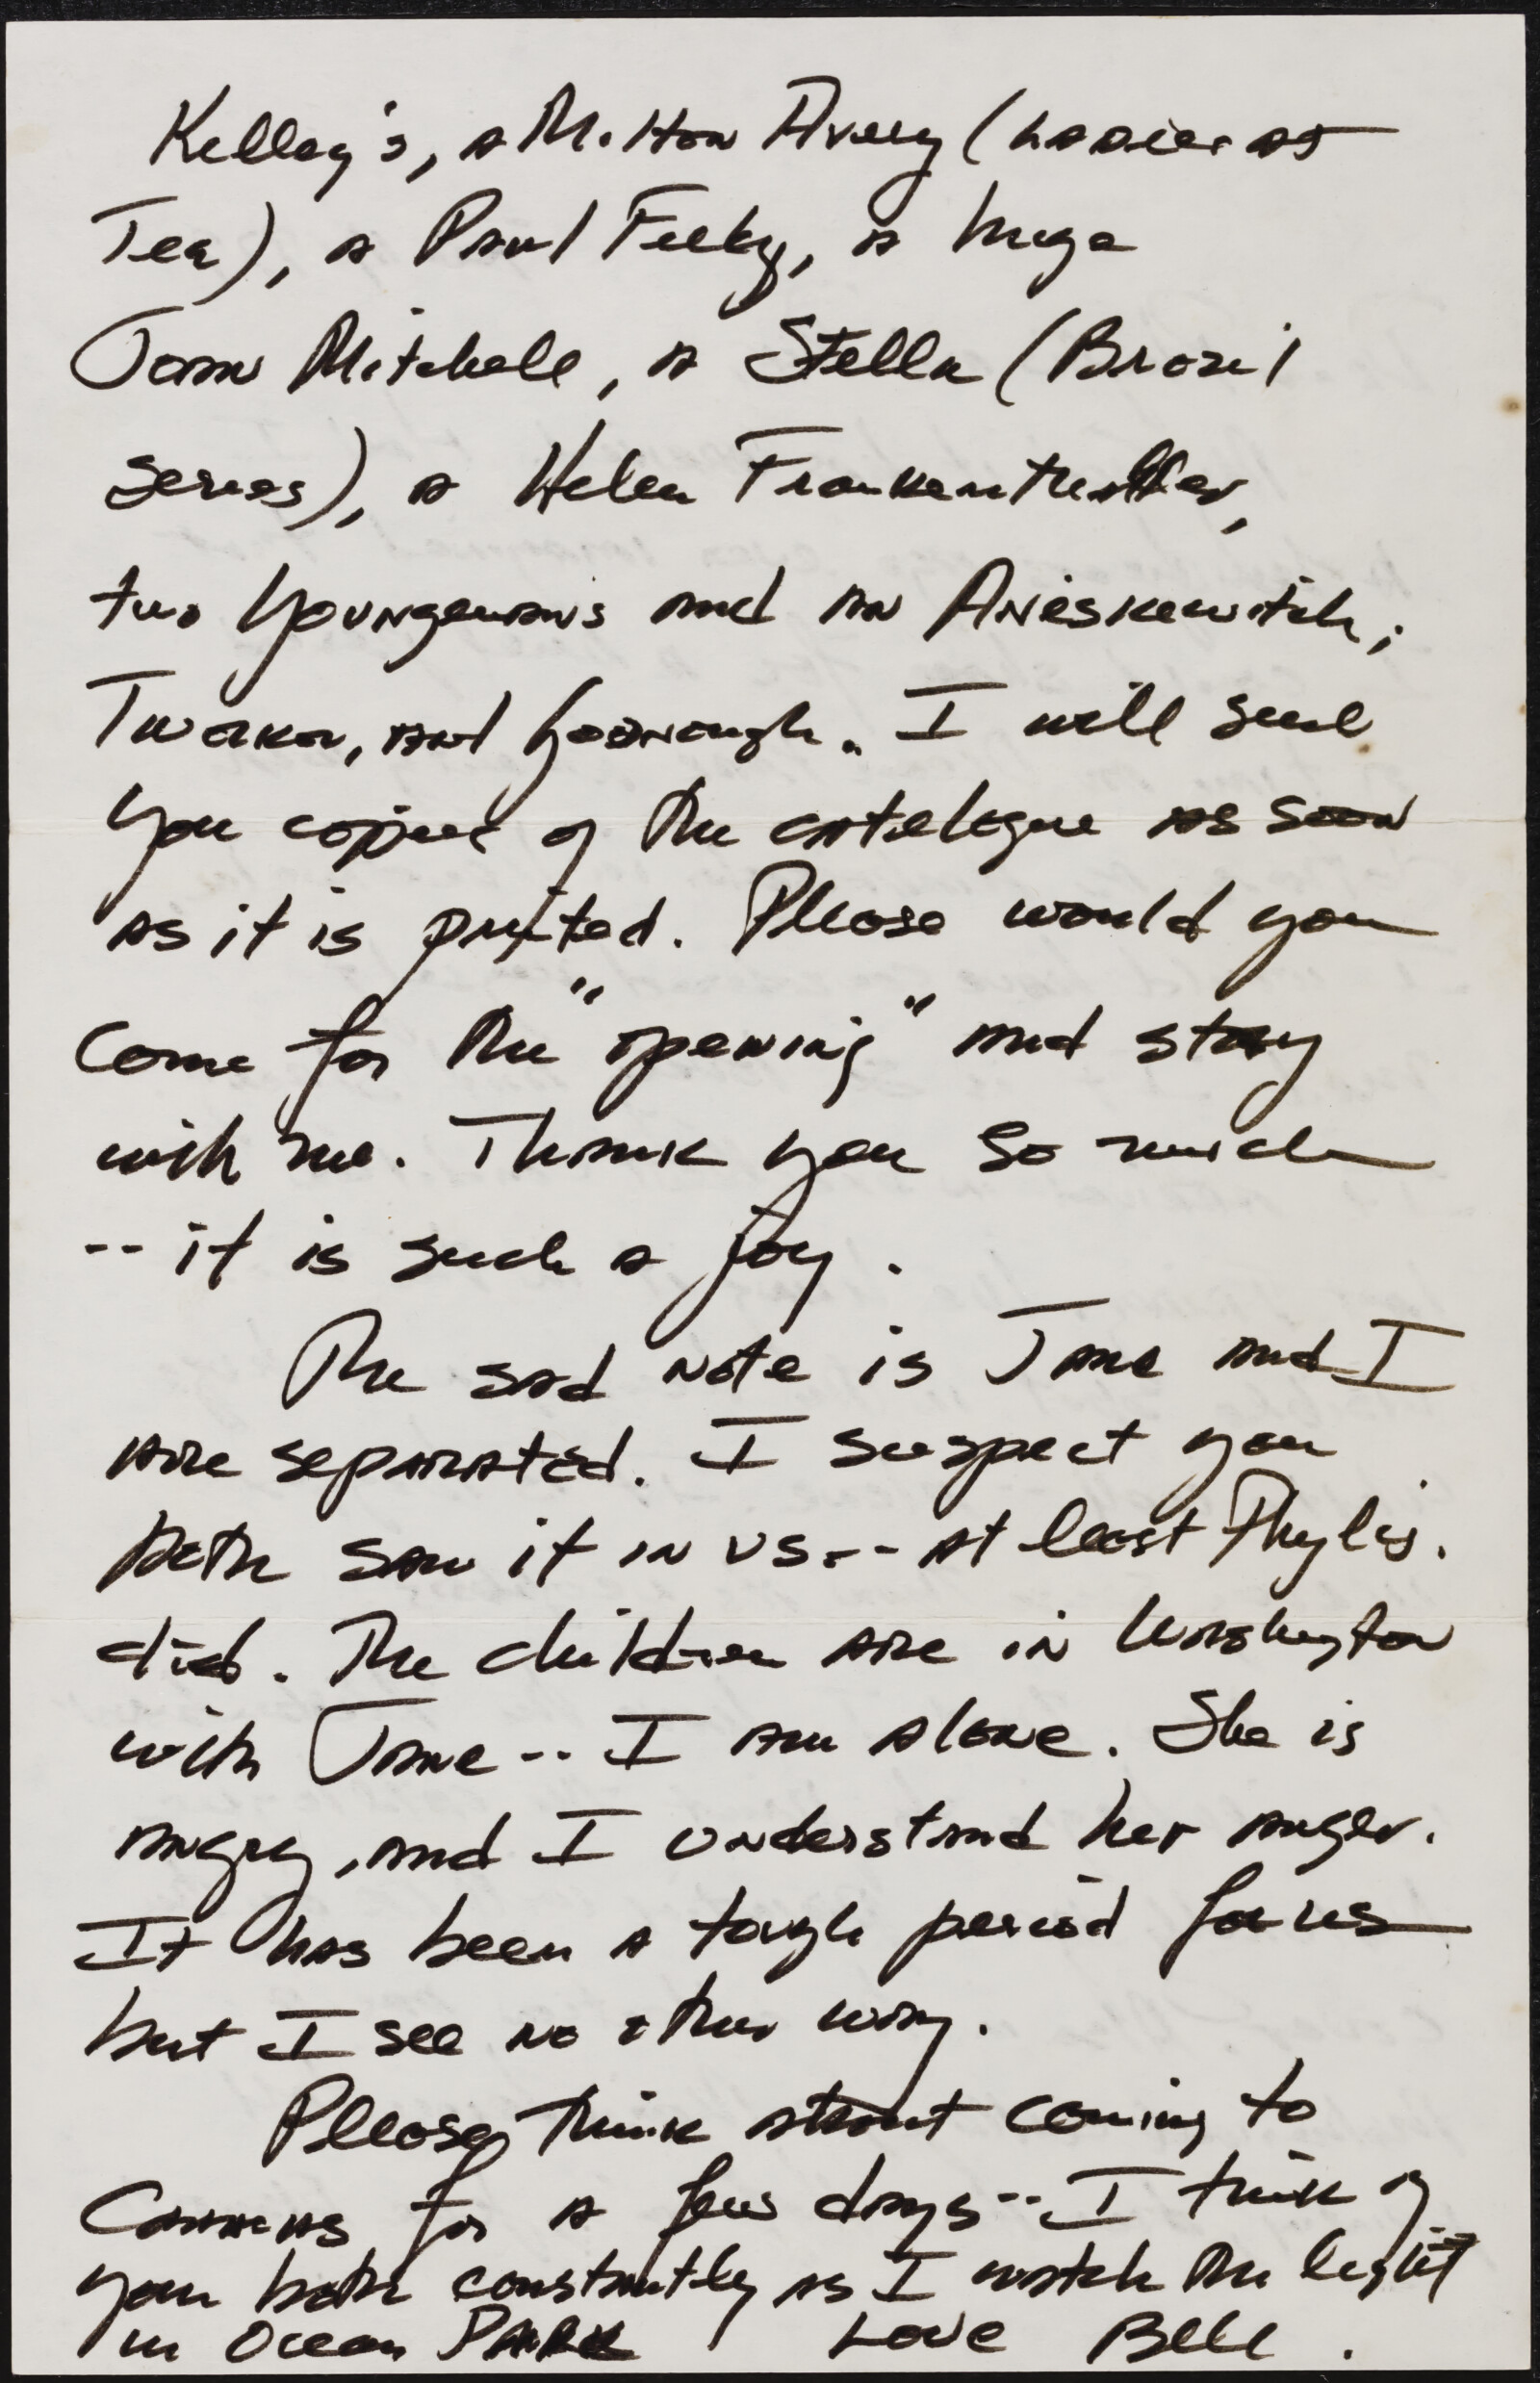 Kelley's, a Milton Avery (Ladies at
Tea), a Paul Feeley, a huge
Joan Mitchell, a Stella (Brazil
series), a Helen Frankenthaller,
two Youngermans and an Anieskewitch;
Tworkov, and Goodnough. I will send
you copies of the catelogue as soon
as it is printed. Please would you
come for the "opening" and stay
with me. Thank you so much
-- it is such a joy.
The sad note is Jane and I
are separated. I suspect you
both saw it in us -- at least Phylis.
did. The children are in Washington
with Jane -- I am alone. She is
angry, and I understand her anger.
It has been a tough period for us
but I see no other way.
Please think about coming to
for a few days -- I think of
you both constantly as I watch the light
in Ocean PARK Love Bill.